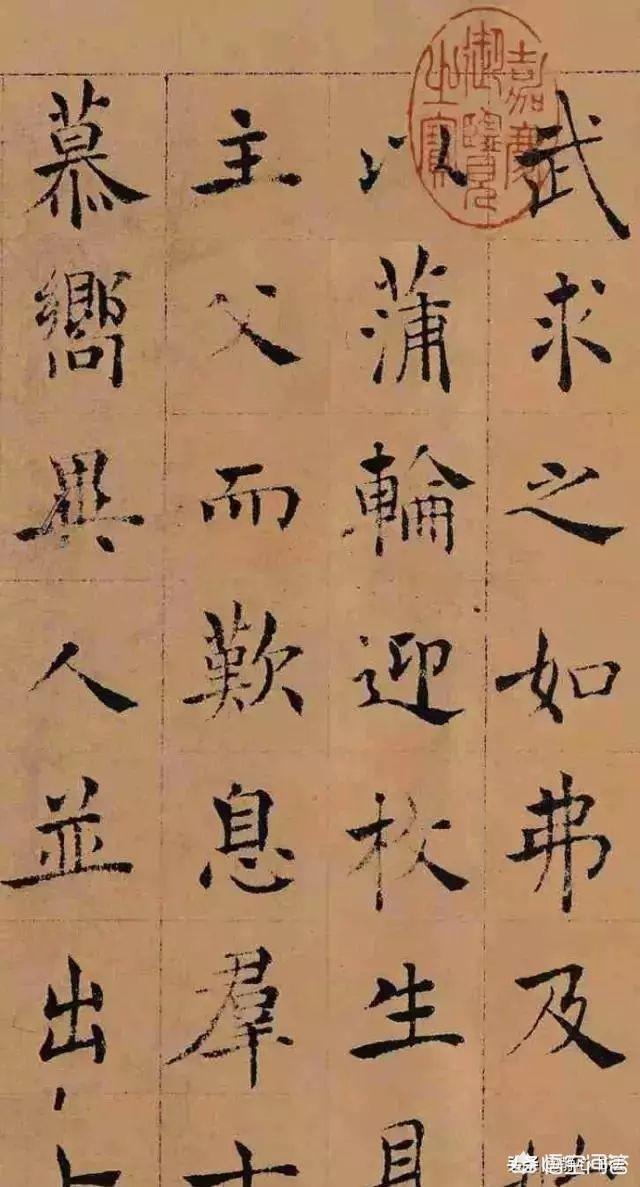 武求之如弗及
以蒲輪迎枚生見
主父而歎息羣士
慕嚮異人並出卜
嘉慶御覽之寶
悟空问答